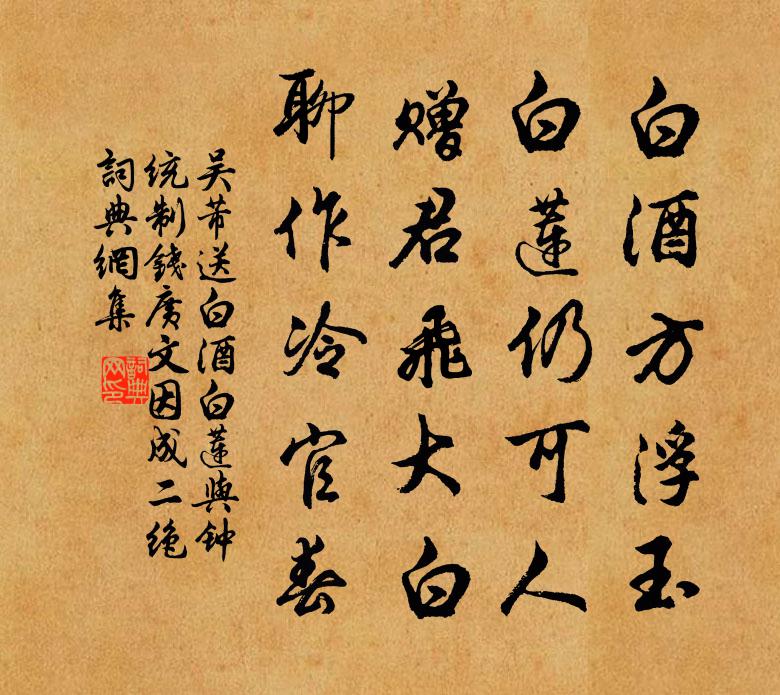 白酒方浮玉
白蓮仍可人
贈君飛大白
聊作冷官春
吴芾送白酒白蓮與钟
统制錢廣文因成二绝
詞典網集
詞典网印